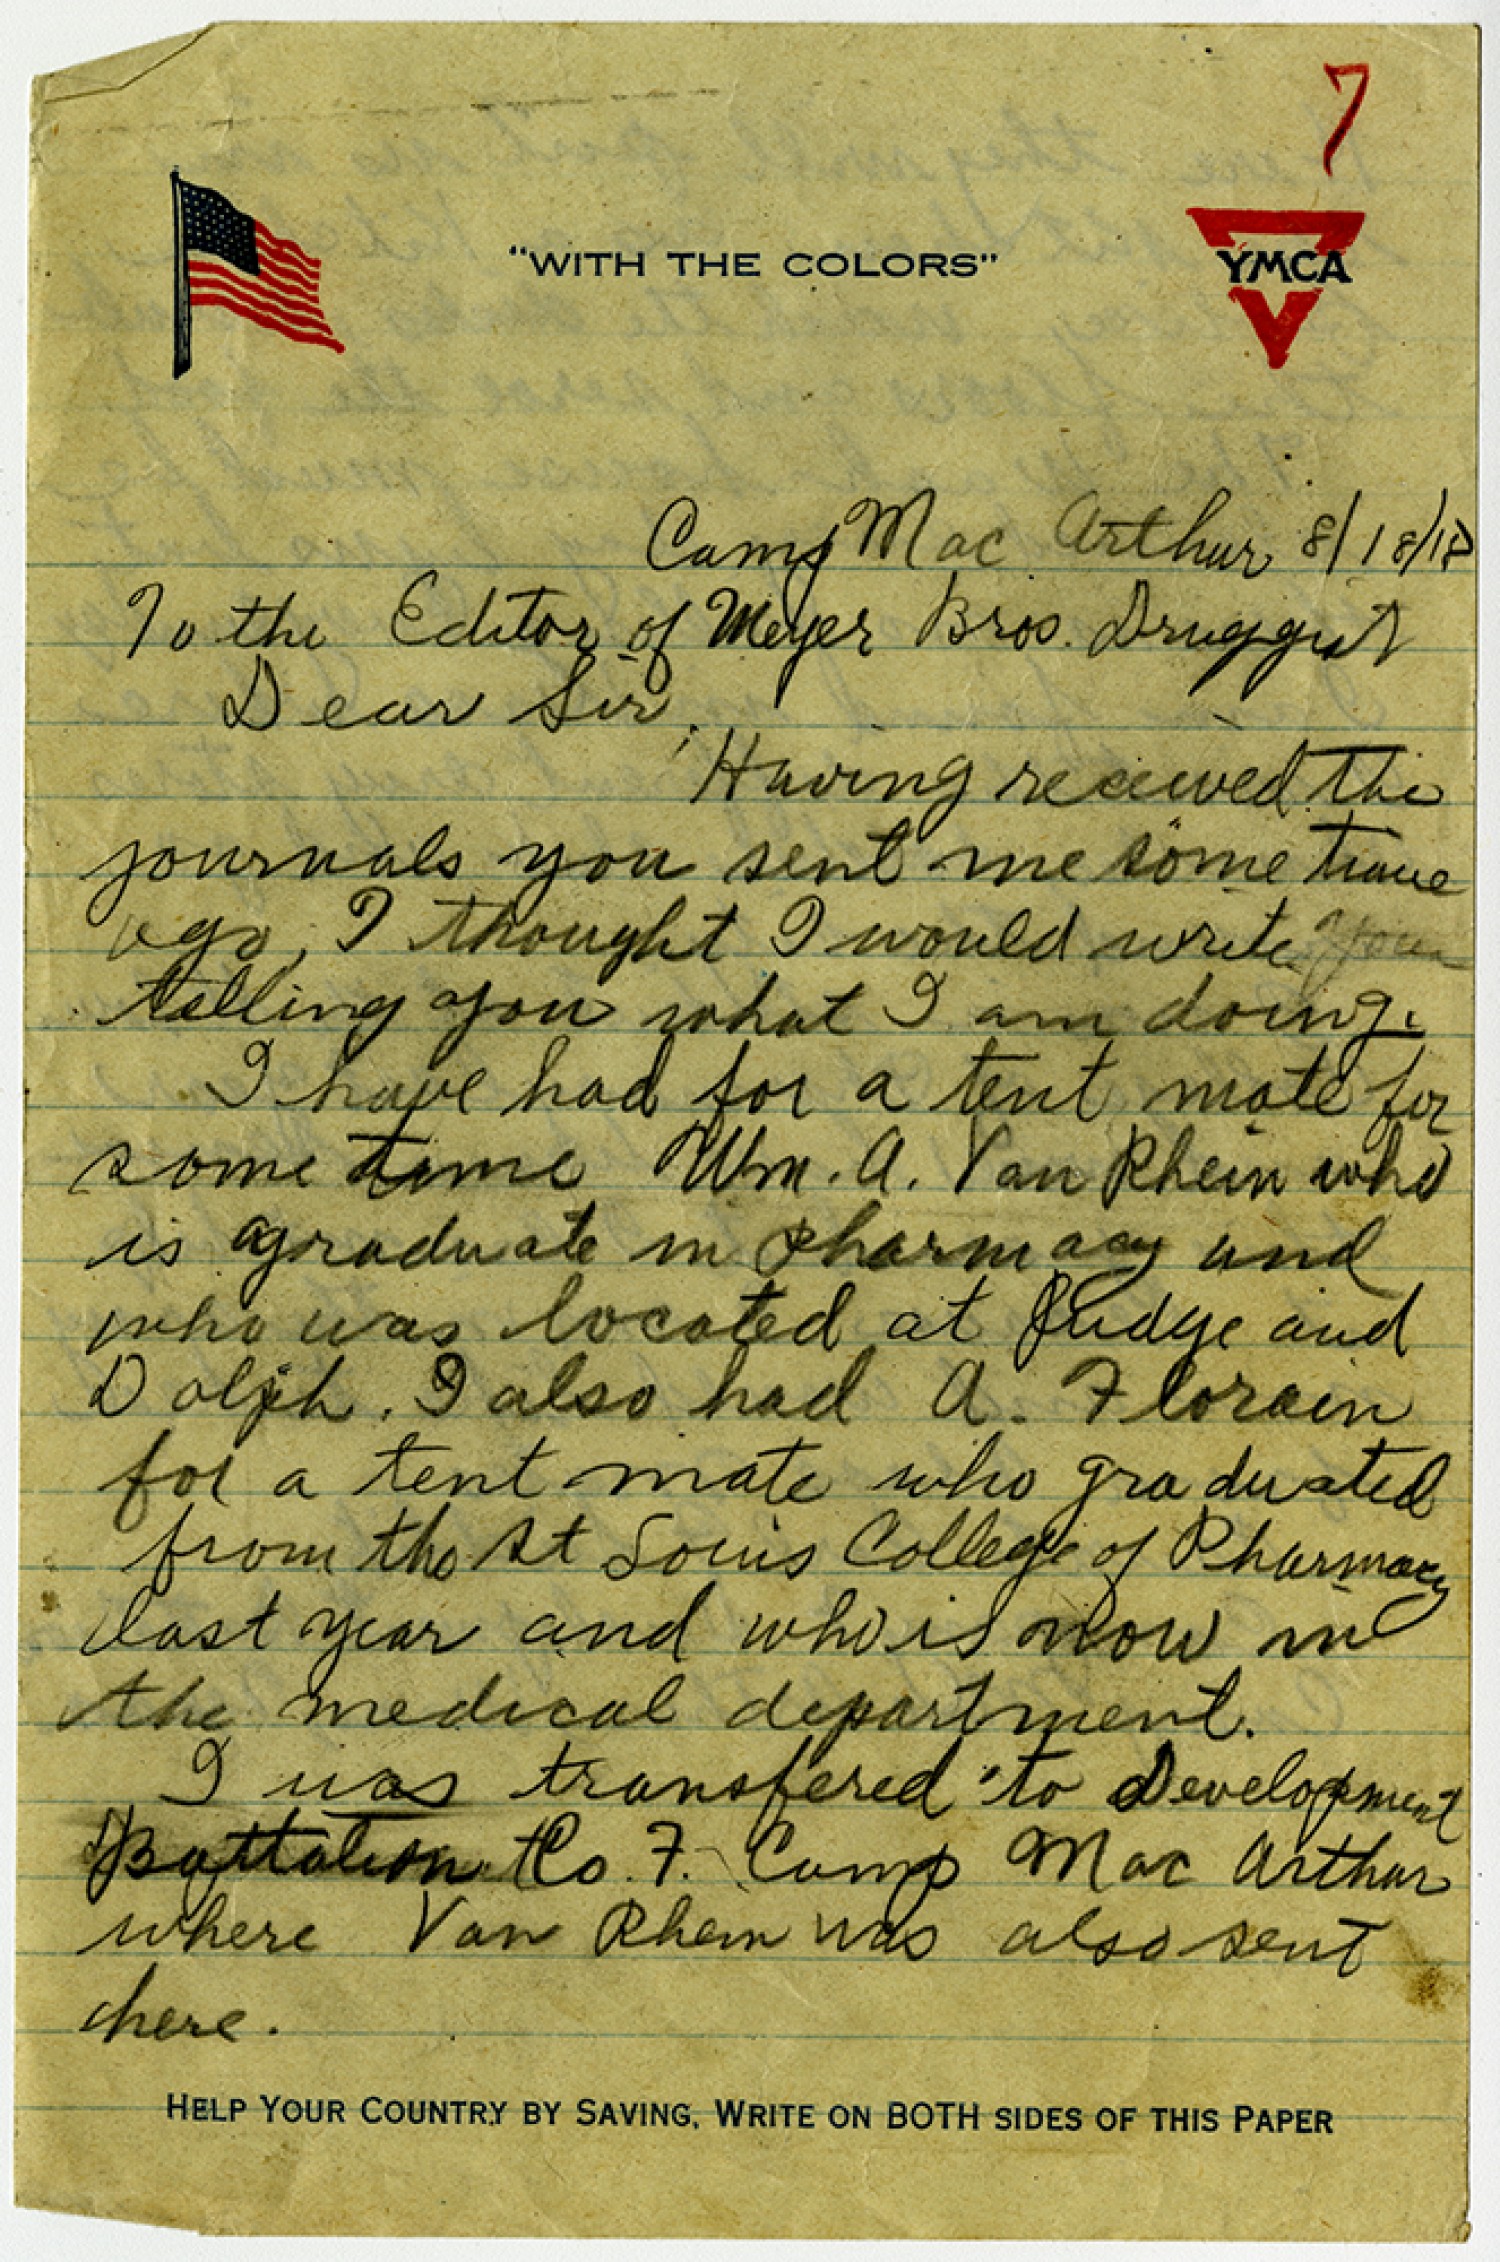 7
"WITH THE COLORS"
YMCA
Camp Mac Arthur 8/18/18
To the Editor of Meyer Bros. Druggist
Dear Sir,
Having received the
journals you sent me some time
ago, I thought I would write you
telling you what I am doing.
I have had for a tent mate for
some time Wm. A. Van Rhein who
is a graduate in pharmacy and
who was located at Judge and
Dolph. I also had A. Florein
for a tent mate who graduated
from the St Louis College of Pharmacy
last year and who is now in
the medical department.
I was transfered to Development
Battalion Co. F. Camp Mac Arthur
where Van Rhein was also sent
here.
HELP YOUR COUNTRY BY SAVING, WRITE ON BOTH SIDES OF THIS PAPER